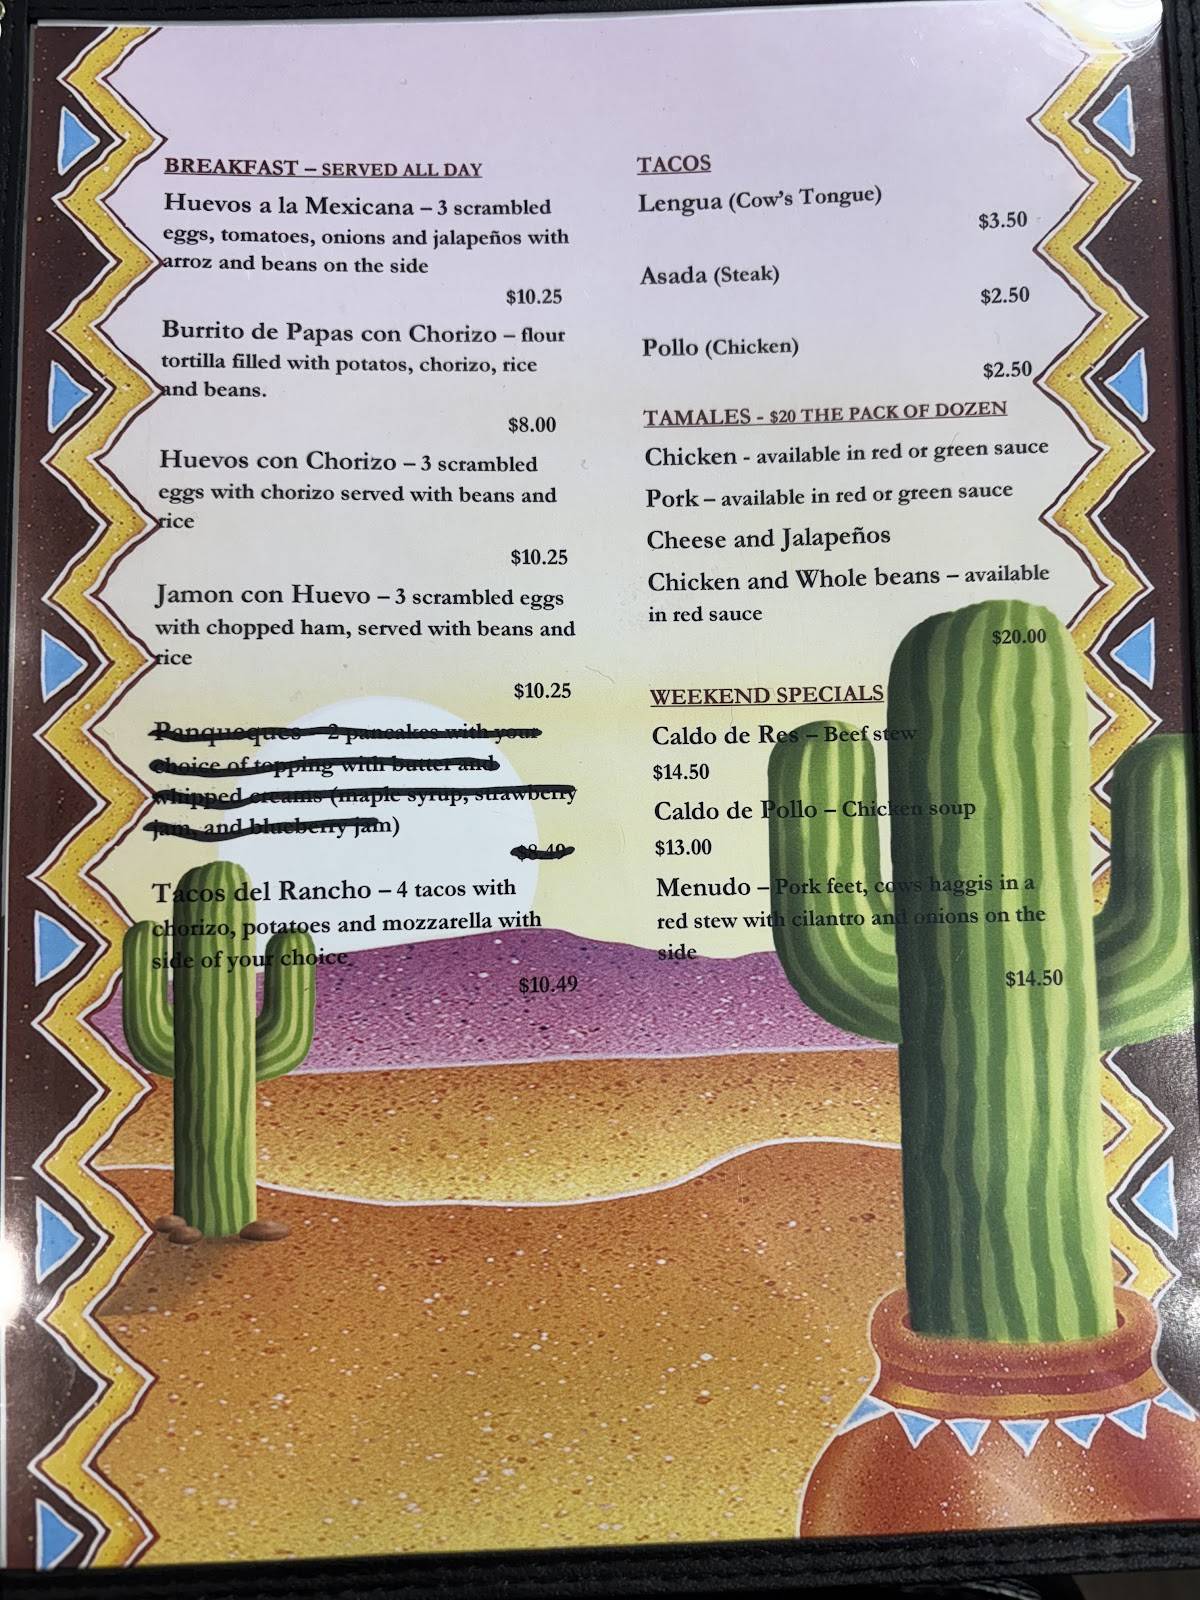 BREAKFAST – SERVED ALL DAY
Huevos a la Mexicana – 3 scrambled
eggs, tomatoes, onions and jalapeños with
arroz and beans on the side
$10.25
Burrito de Papas con Chorizo – flour
tortilla filled with potatos, chorizo, rice
and beans.
$8.00
Huevos con Chorizo – 3 scrambled
eggs with chorizo served with beans and
rice
$10.25
Jamon con Huevo – 3 scrambled eggs
with chopped ham, served with beans and
rice
$10.25
Panqueques – 2 pancakes with your
choice of topping with butter and
whipped creams (maple syrup, strawberry
jam, and blueberry jam)
$8.49
Tacos del Rancho – 4 tacos with
chorizo, potatoes and mozzarella with
side of your choice
$10.49
TACOS
Lengua (Cow's Tongue)
$3.50
Asada (Steak)
$2.50
Pollo (Chicken)
$2.50
TAMALES - $20 THE PACK OF DOZEN
Chicken - available in red or green sauce
Pork – available in red or green sauce
Cheese and Jalapeños
Chicken and Whole beans – available
in red sauce
$20.00
WEEKEND SPECIALS
Caldo de Res – Beef stew
$14.50
Caldo de Pollo – Chicken soup
$13.00
Menudo – Pork feet, cows haggis in a
red stew with cilantro and onions on the
side
$14.50